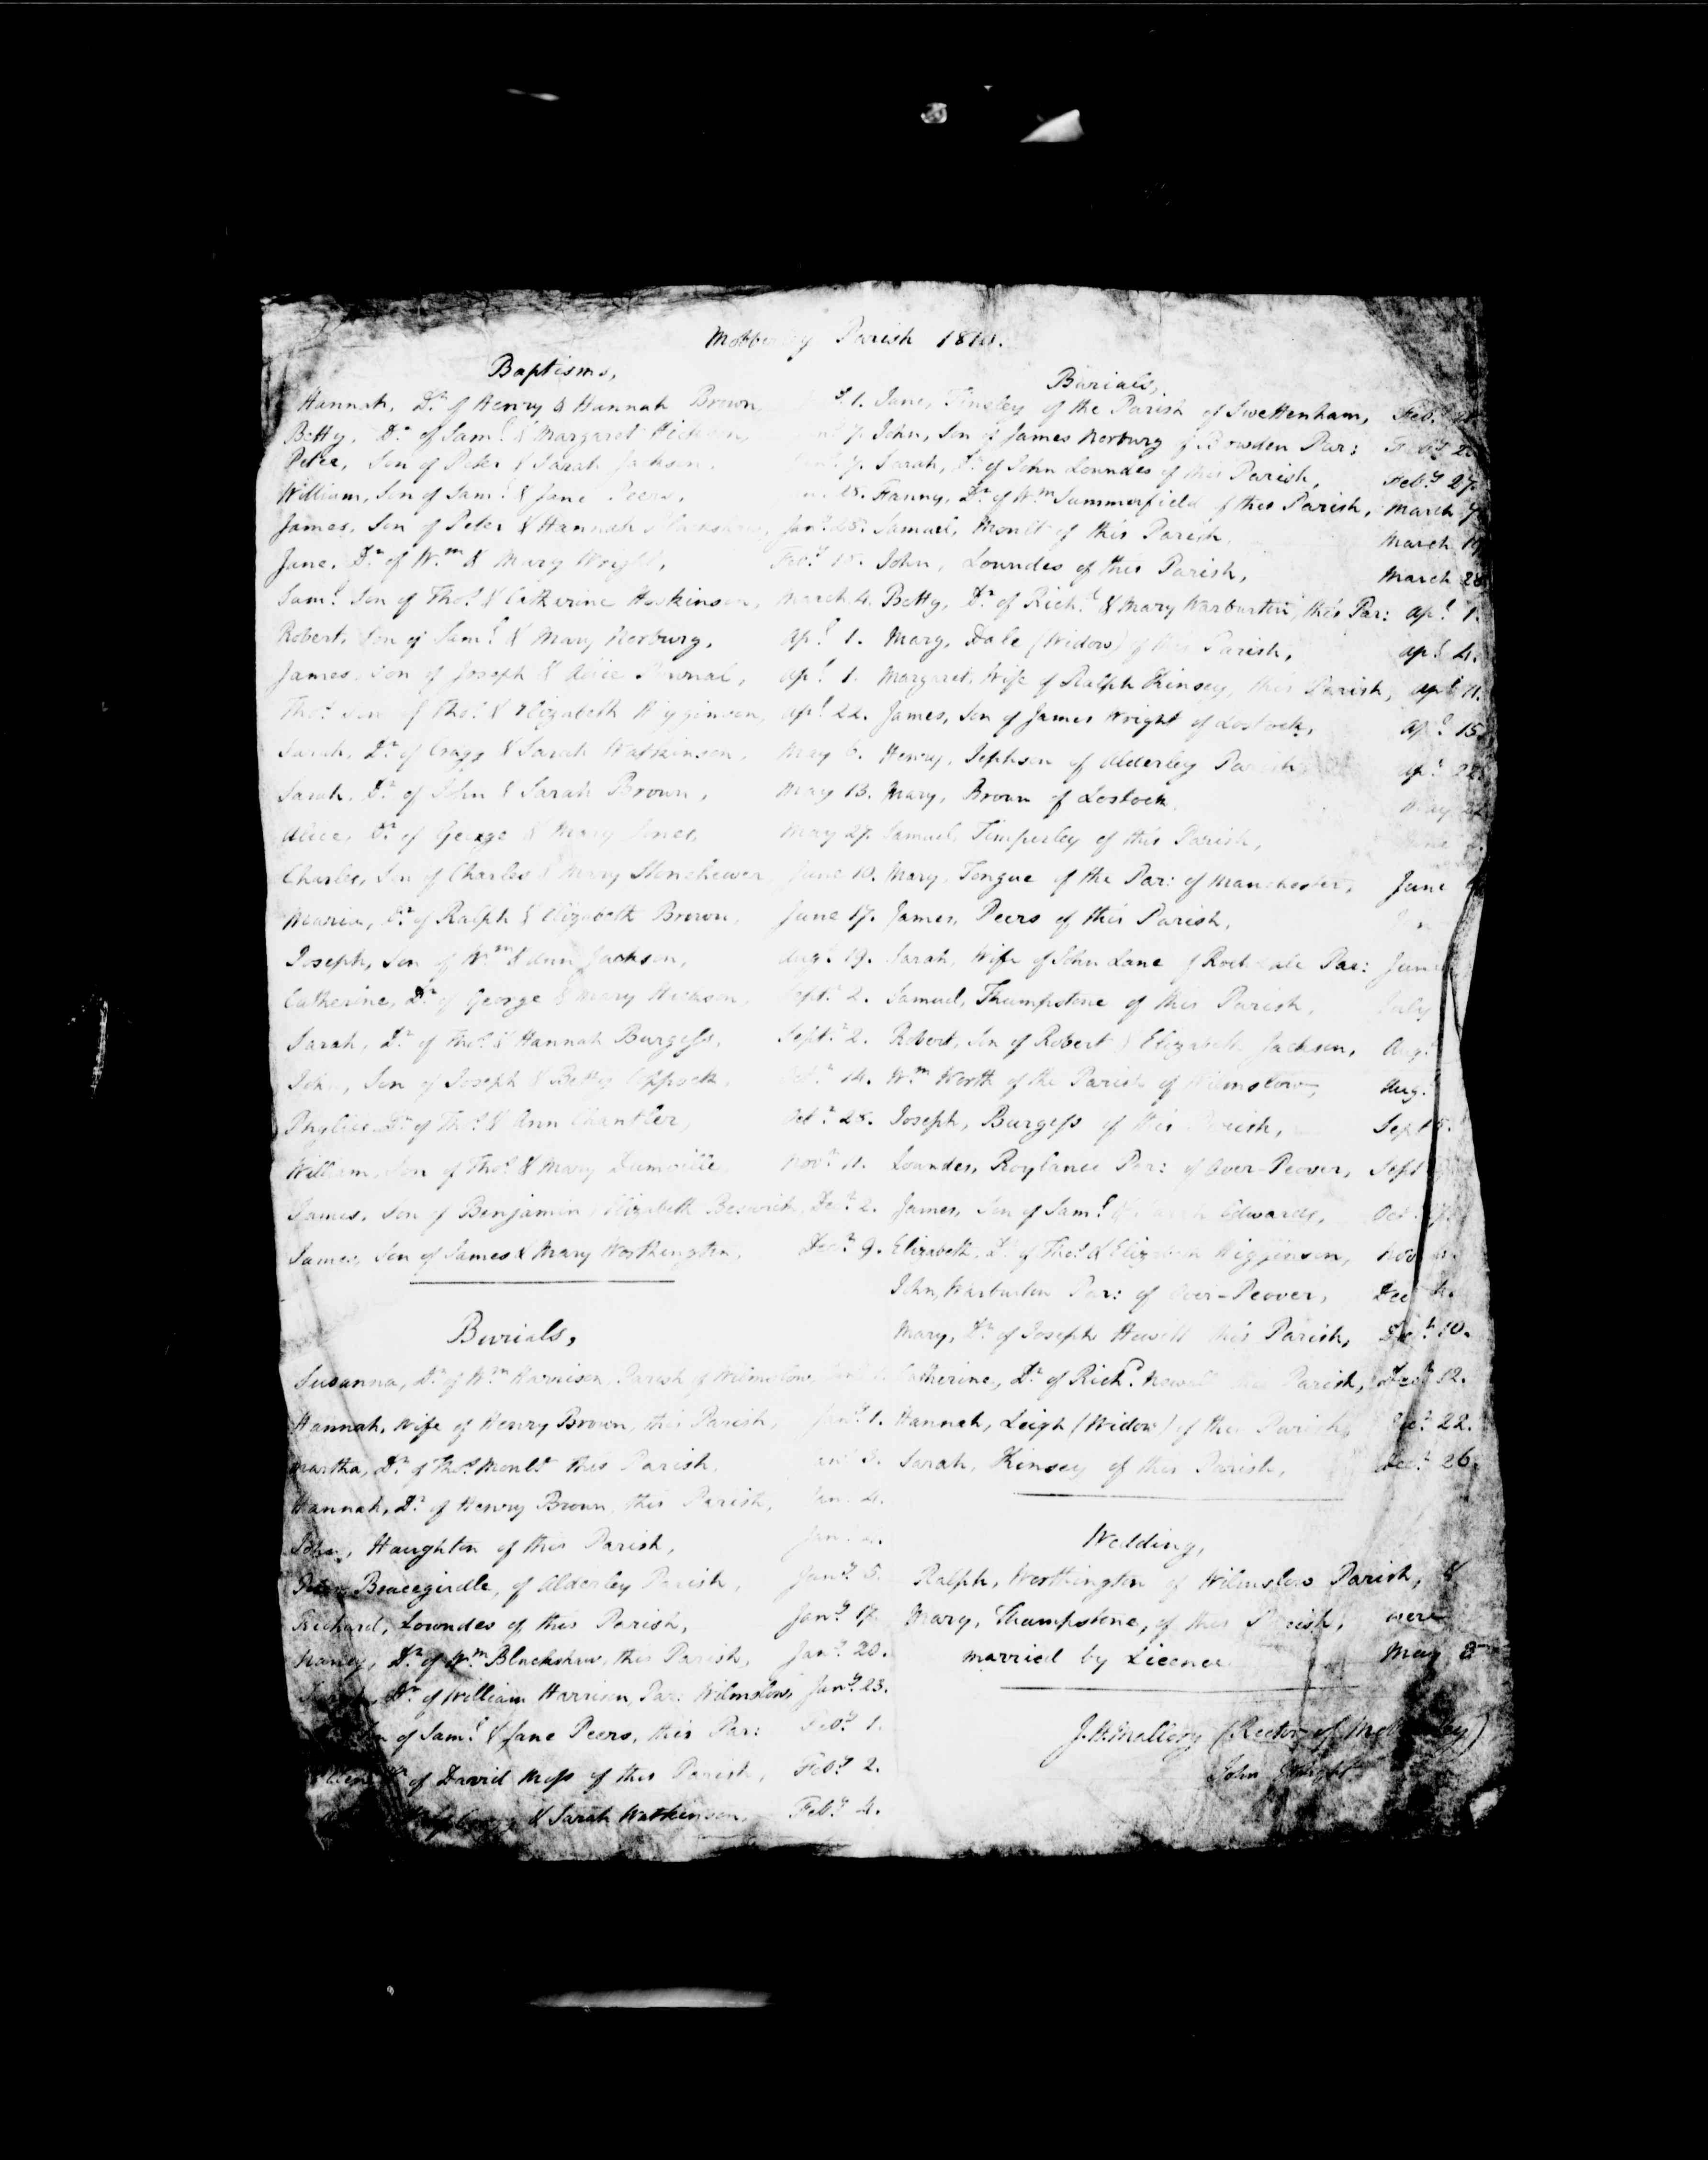 Mobberley Parish 1810.
Baptisms,
Hannah, Dr. of Henry & Hannah Brown,
Betty, Dr. of Saml. & Margaret
Peter, Son of Peter & Sarah Jackson,
William, Son of Saml. & Jane Peers,
James, Son of Peter & Hannah Jany. 28.
Jane, Dr. of Wm. & Mary Wright, Feby. 18.
Saml. Son of Thos. & Catherine Hoskinson, March 4.
Robert, Son of Saml. & Mary Norbury, Apl. 1.
James, Son of Joseph & Alice Apl. 1.
Thos. Son of Thos. & Elizabeth Higginson, Apl. 22.
Sarah, Dr. of Cragg & Sarah Watkinson, May 6.
Sarah, Dr. of John & Sarah Brown, May 13.
Alice, Dr. of George & Mary Jones, May 27.
Charles, Son of Charles & Mary Stonehewer June 10.
Maria, Dr. of Ralph & Elizabeth Brown, June 17.
Joseph, Son of Wm. & Ann Jackson, Augt. 19.
Catherine, Dr. of George & Mary Hickson, Septr. 2.
Sarah, Dr. of Thos. & Hannah Burgess, Septr. 2.
John, Son of Joseph & Betty Coppock, 14.
Phyllis Dr. of Thos. & Ann Chantler, Octr. 28.
William, Son of Thos. & Mary Dumville, Novr. 11.
James, Son of Benjamin & Elizabeth Beswick, Decr. 2.
James, Son of James & Mary Worthington, Decr. 9.
Burials,
Susanna, Dr. of Wm. Harrison, Parish of Wilmslow
Hannah, Wife of Henry Brown, this Parish, Jany. 1.
Martha, Dr. of Thos. Moult this Parish, 3.
Hannah, Dr. of Henry Brown, this Parish, Jany. 4.
John, Haughton of this Parish,
Peter Bracegirdle, of Alderley Parish, Jany. 5.
Richard, Lowndes of this Parish, Jany. 17.
Nancy, Dr. of Wm. Blackshaw, this Parish, Jany. 20.
Dr. of William Harrison, Par: Wilmslow, Jany. 23.
of Saml. & Jane Peers, this Par: Feby. 1.
Dr. of David Moss of this Parish, Feby. 2.
& Sarah Watkinson, Feby. 4.
Burials,
Jane, Tinsley of the Parish of Swettenham, Feby.
John, Son of James Norbury of Bowden Par: Feby. 2
Sarah, Dr. of John Lowndes of this Parish, Feby. 27.
Fanny, Dr. of Wm. Summerfield of this Parish, March 7.
Samuel, Moult of this Parish, March 19
John, Lowndes of this Parish, March 28
Betty, Dr. of Richd. & Mary Warburton, this Par: Apl. 1.
Mary, Dale (Widow) of this Parish, Apl. 4.
Margaret, Wife of Ralph Kinsey, this Parish, Apl. 11.
James, Son of James Wright of Lostock, Apl. 15.
Henry, Jephson of Alderley Parish, Apl. 22.
Mary, Brown of Lostock May
Samuel, Timperley of this Parish,
Mary, Tongue of the Par: of Manchester, June
James, Peers of this Parish,
Sarah, Wife of John Lane of Rochdale Par: June
Samuel, Thumpstone of this Parish, July
Robert, Son of Robert & Elizabeth Jackson, Augt.
Wm. Worth of the Parish of Wilmslow, Augt.
Joseph, Burgess of this Parish, Sept
Lowndes, Roylance Par: of Over-Peover, Sept
James, Son of Saml. & Edwards, Oct
Elizabeth, Dr. of Thos. & Elizabeth Higginson, Nov
John, Warburton Par: of Over-Peover, Dec 4.
Mary, Dr. of Joseph Hewitt this Parish, Decr. 10.
Catherine, Dr. of Richd. this Parish, Decr. 12.
Hannah, Leigh (Widow) of this Parish, Decr. 22.
Sarah, Kinsey of this Parish, Decr. 26.
Wedding,
Ralph, Worthington of Wilmslow Parish, &
Mary, Thumpstone, of this Parish, were
married by Licence May 3
J. H. Mallory (Rector of Mobberley)
John Wright